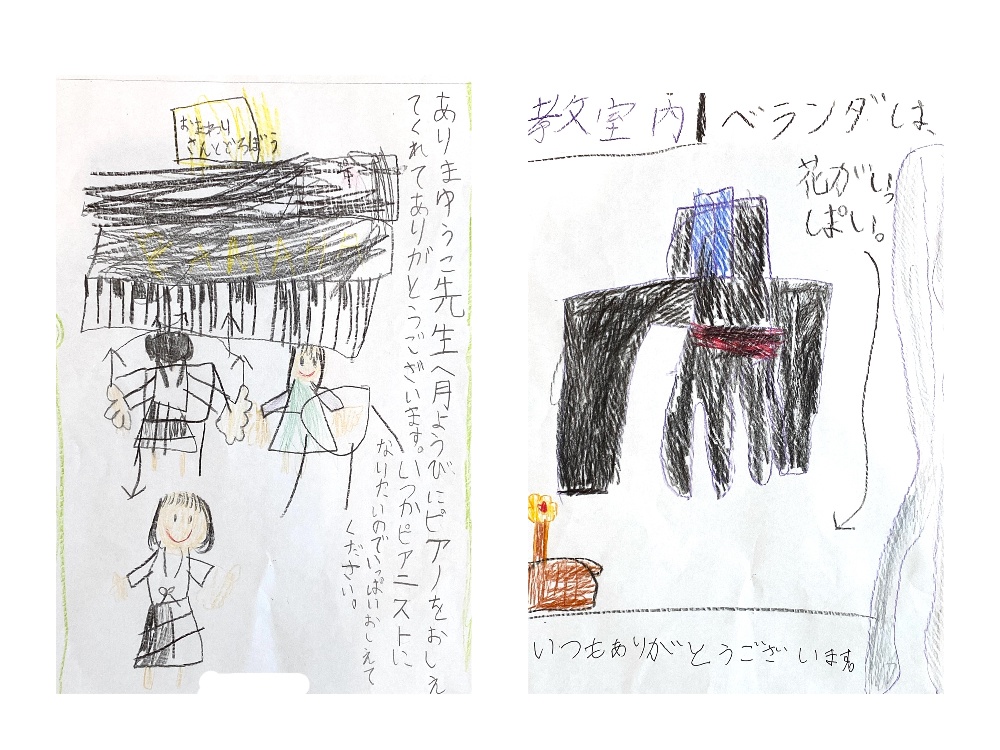 ありまゆうこ先生へ月ようびにピアノをおしえ
てくれてありがとうございます。いつかピアニストに
なりたいのでいっぱいおしえて
ください。
おまわり
さんとどろぼう
教室内
ベランダは
花がいっ
ぱい。
いつもありがとうございます。